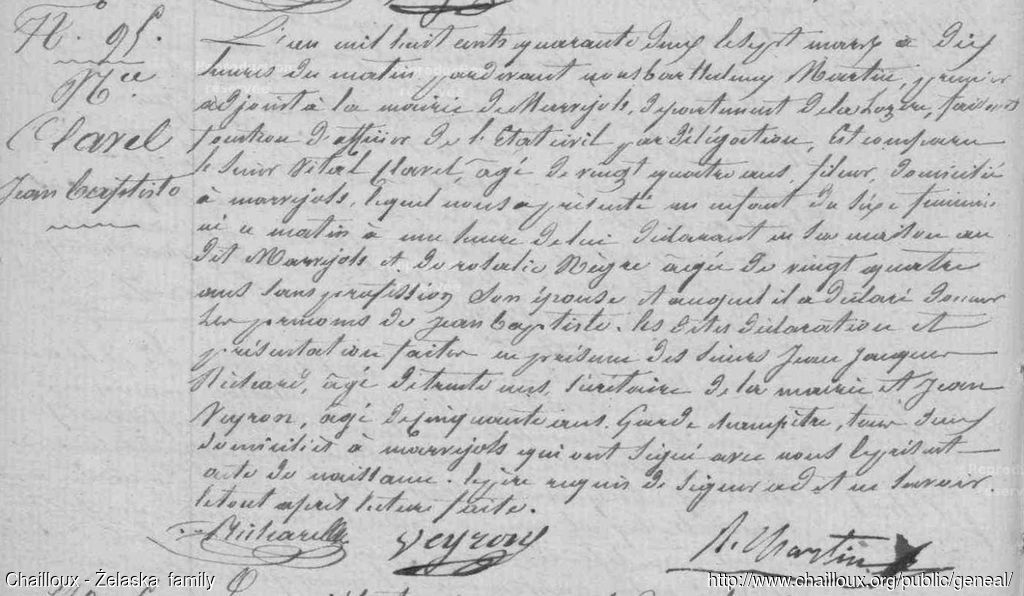 N.º 95.
N.ce
Clavel
Jean Baptiste
L'an mil huit cents quarante deux le sept mars à dix
heures du matin, pardevant nous barthelemy Martin, premier
adjoint à la mairie de Marvejols, departement de la Lozère, faisant
fonction d'officier de l'Etat civil par délégation, Est comparu
le sieur Vital Clavel, agé de vingt quatre ans, fileur, domicilié
à marvejols, lequel nous a présenté un enfant du sexe
né ce matin à une heure de lui déclarant en sa maison au
dit Marvejols et de rosalie Nègre agée de vingt quatre
ans sans profession Son épouse et auquel il a déclaré donner
les prenoms de Jean baptiste. les dites déclaration et
présentation faites en présence des sieurs Jean Jacques
Richard, âgé de trente ans, sécrétaire de la mairie et Jean
Veyron, agé de cinquante ans. Garde champêtre, tous deux
domiciliés à marvejols qui ont signé avec nous le présent
acte de naissance. le père requis de signer a dit ne savoir
le tout après lecture faite.
Richard
Veyron
B. Martin
Chailloux - Želaska family
http://www.chailloux.org/public/geneal/